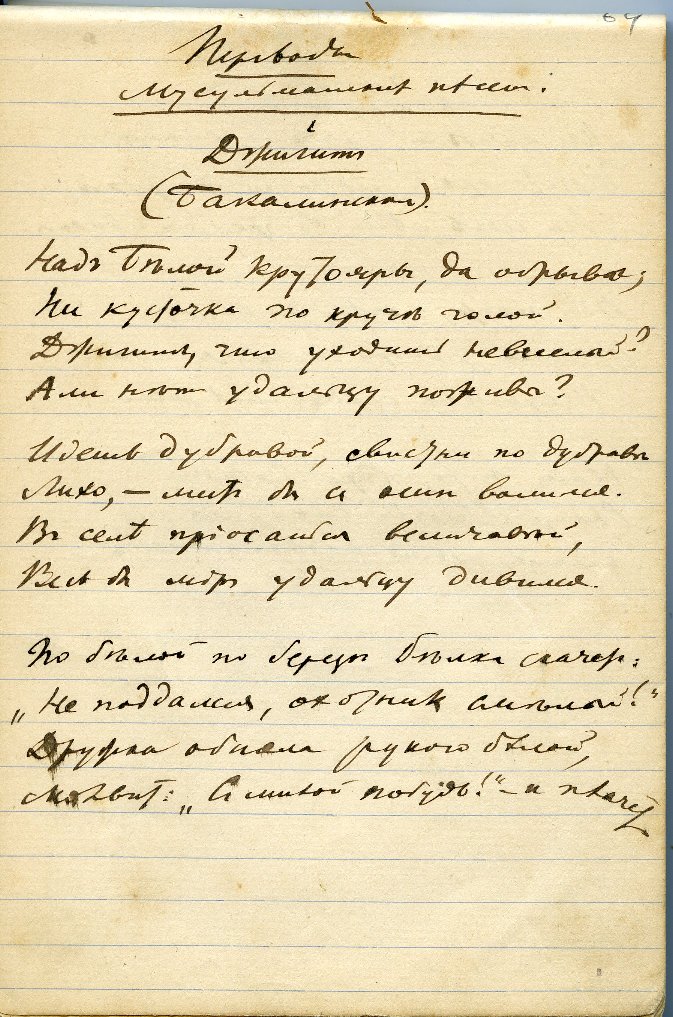 64
Переводы
Мусульманских пѣсен.
Джигитъ
(Бакалинская).
Надъ Бѣлой крутояры, да обрывы;
Ни кусточка по кручѣ голой.
Джигитъ, что уходишь невеселый?
Али нѣтъ удальцу поживы?
Идешь дубравой, свистни по дубравѣ
Лихо, –
Въ селѣ пріосанься величавый,
Весь бы міръ удальцу дивился.
По бѣлой по березѣ бѣлка скачет:
„Не поддамся, охотник смѣлый!“
Дружка обняла рукою бѣлой,
Молвит: „С милой побудь!“ – и плачет